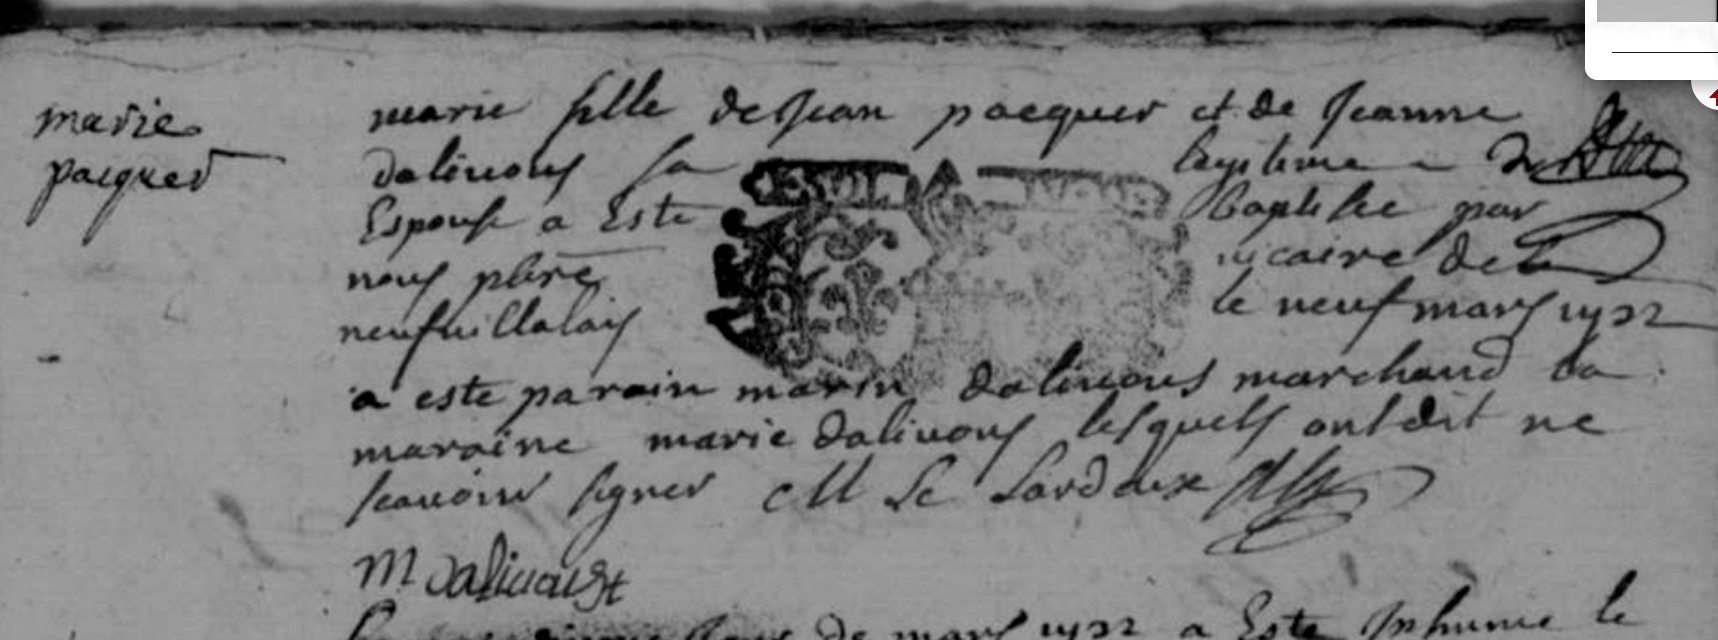 marie
pacquer
marie fille de Jean pacquer et de Jeanne
dalivous sa legitime
Espouse a Este baptisée par
nous pbre vicaire de
neufvillalais le neuf mars 1732
a este parain marin dalivous marchand la
maraine marie dalivous lesquels ont dit ne
scavoir signer M Le Lardeux
M dalivoust
de mars 1732 a Este Inhumé le